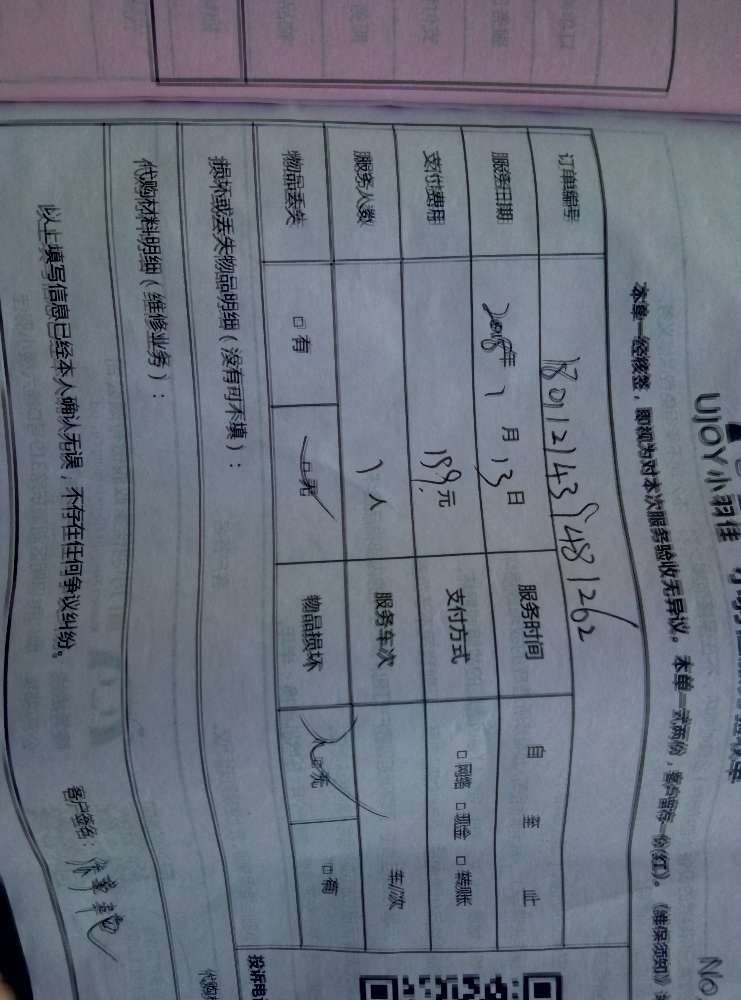 UJOY小羽佳
No
本单一经核签，即视为对本次服务验收无异议。本单一式两份，客户留存一份(红)。(维保须知)
订单编号 1801121439481262
服务日期 2018年 1 月 13 日 服务时间 自 至 止
支付费用 199元 支付方式 □网络 □现金 □转账
服务人数 1 人 服务车次 车/次
物品丢失 □有 □无 物品损坏 □无 □有
损坏或丢失物品明细(没有可不填)：
代购材料明细(维修业务)：
以上填写信息已经本人确认无误，不存在任何争议纠纷。 客户签名：
投诉电
代购材